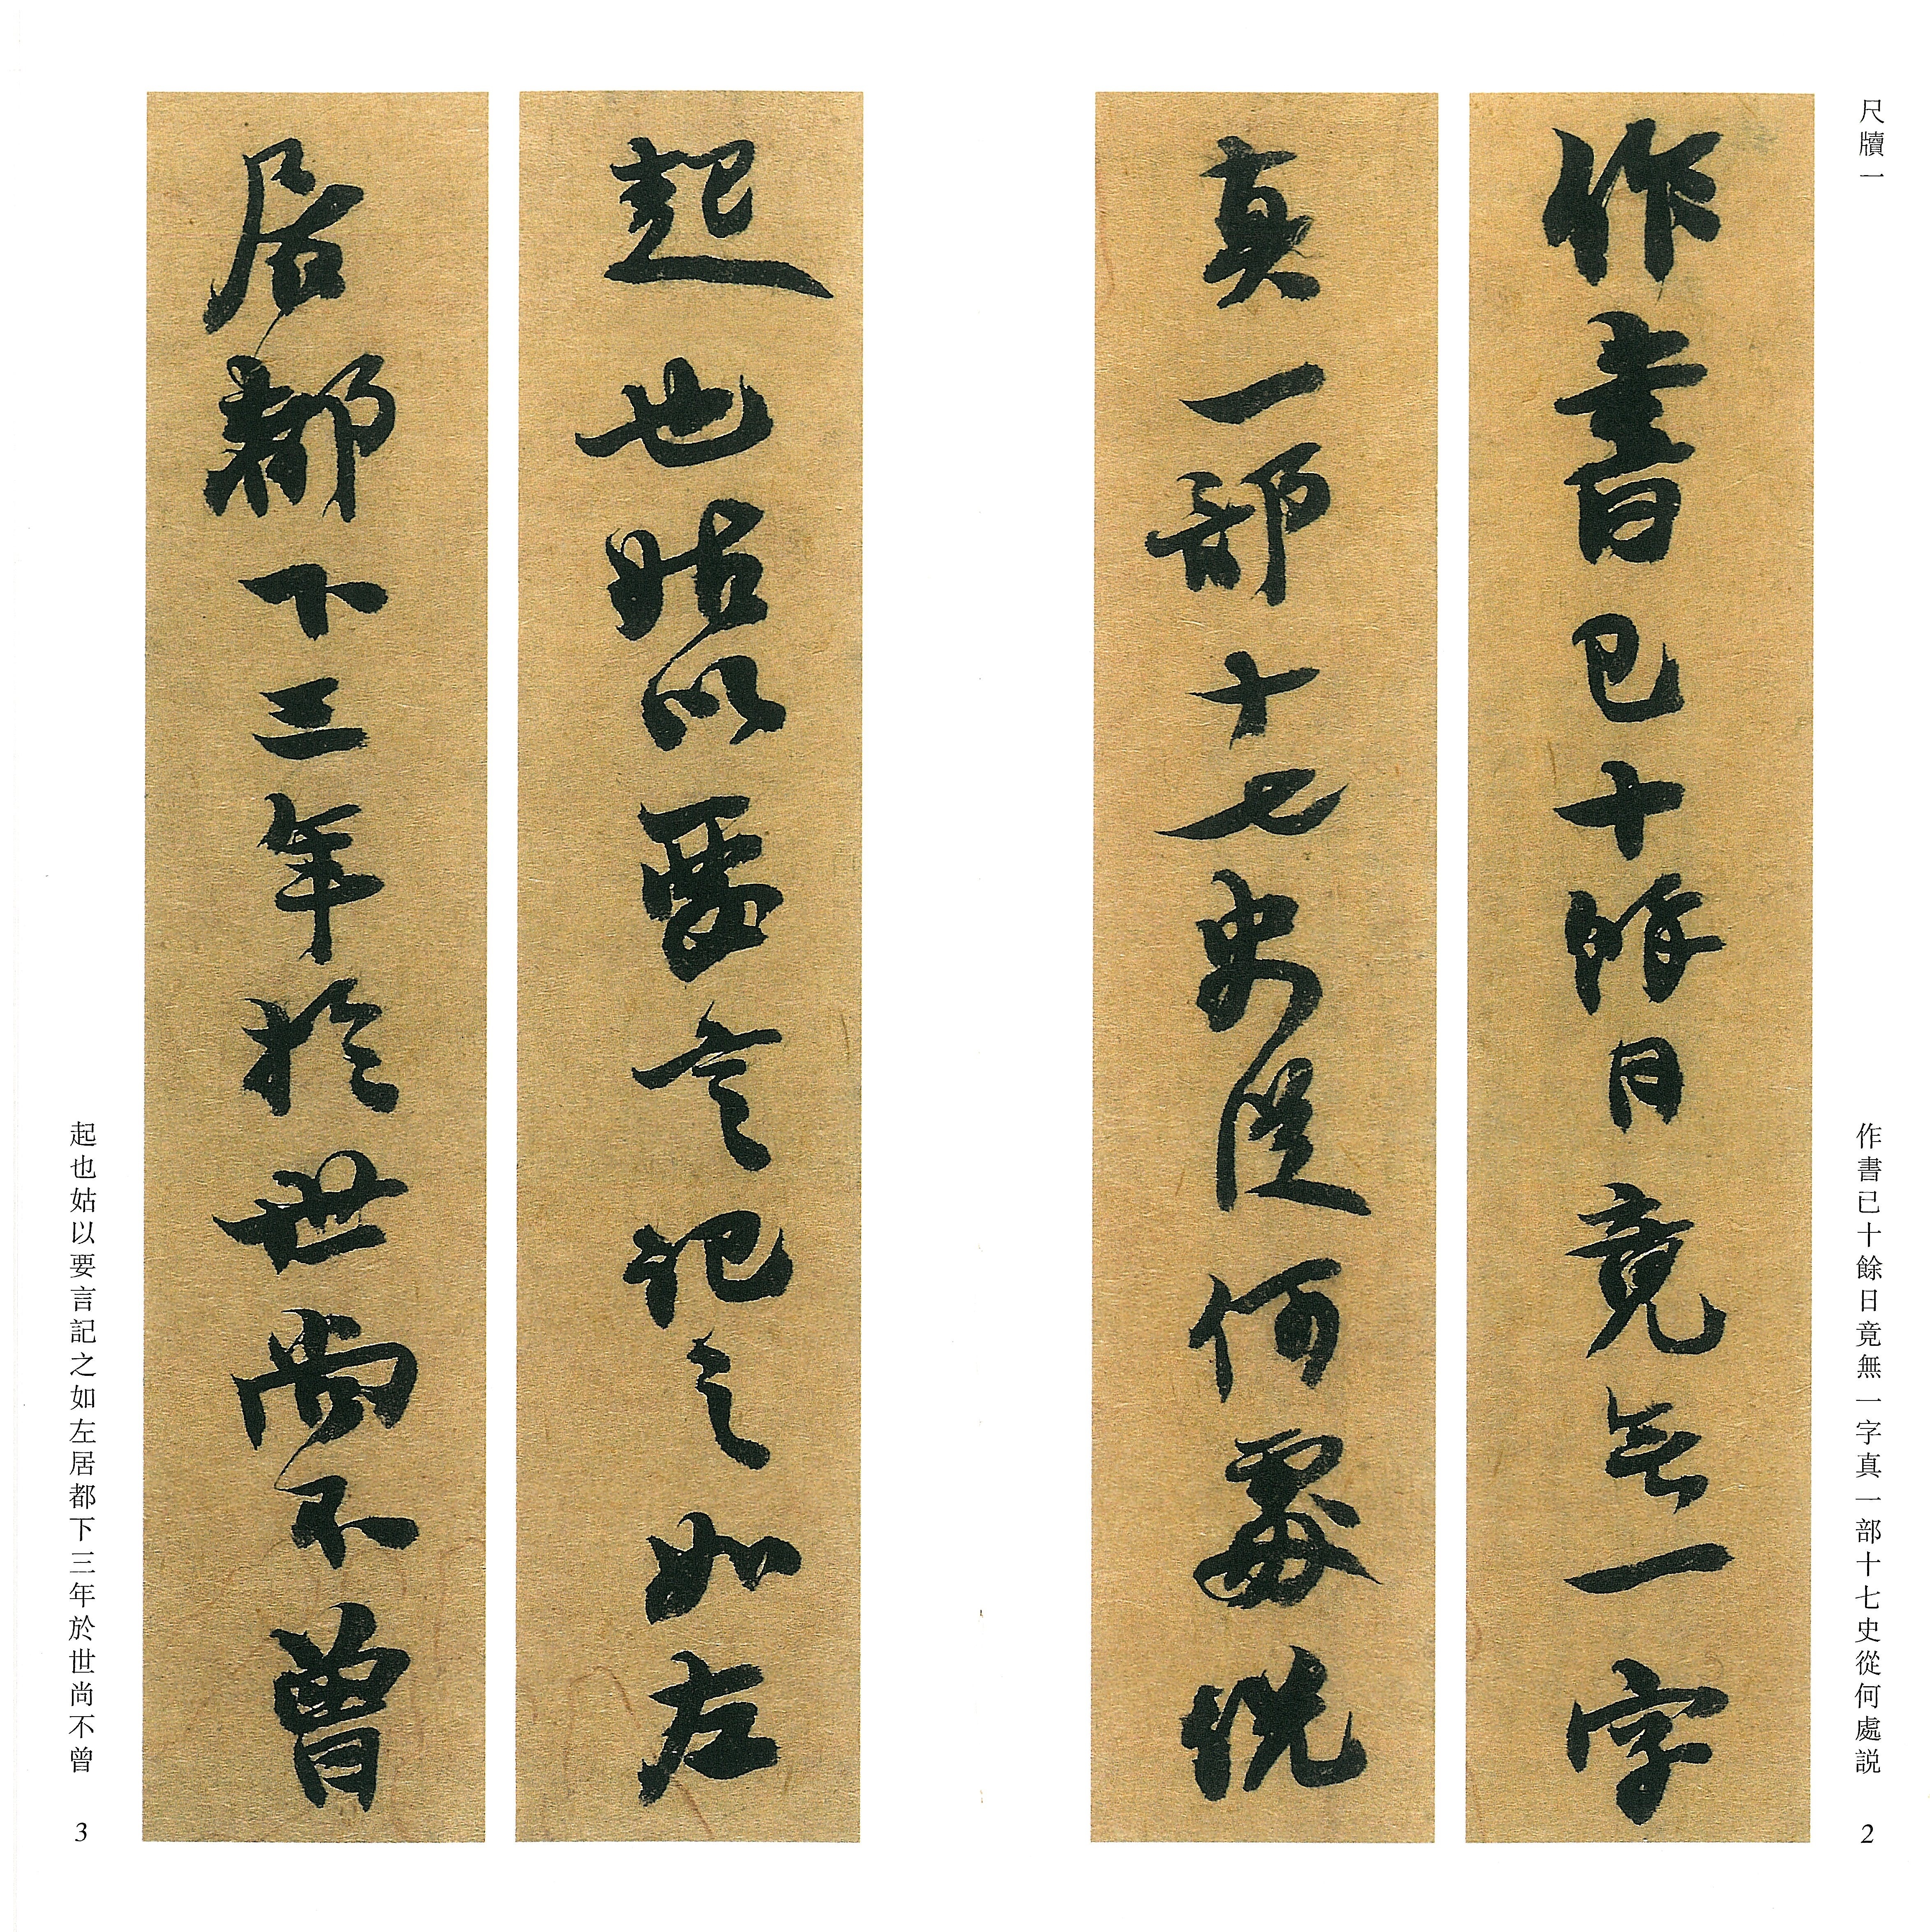 尺牘一
作書已十餘日竟无一字
真一部十七史從何處説
作書已十餘日竟無一字真一部十七史從何處説
2
起也姑以要言記之如左
居都下三年於世尚不曾
起也姑以要言記之如左居都下三年於世尚不曾
3